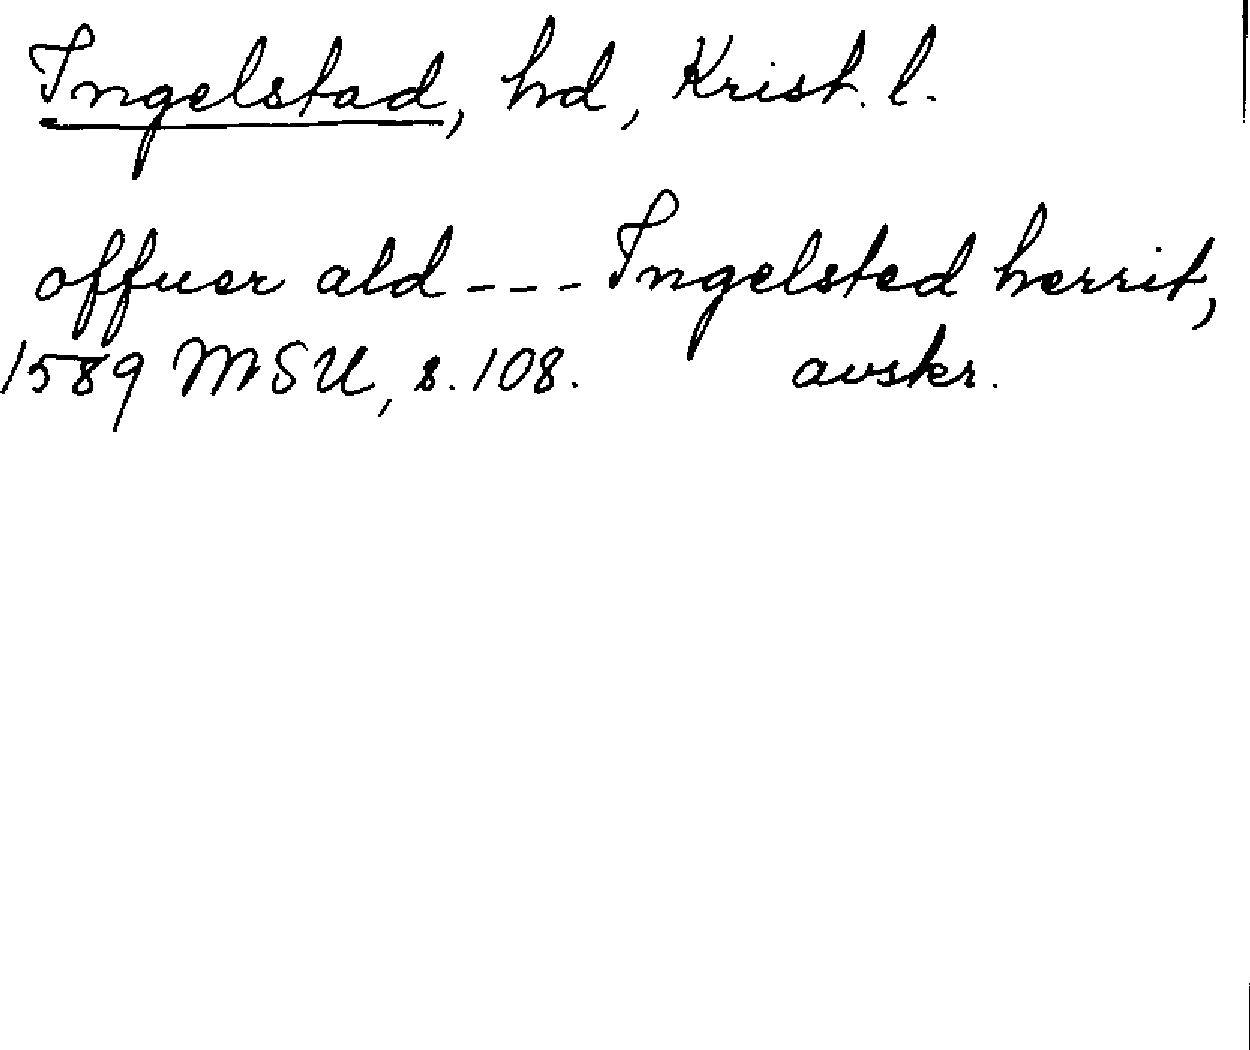 Ingelstad, hd, Krist. l.
offuer ald --- Ingelsted herrit,
1589 MSU, s. 108. avskr.